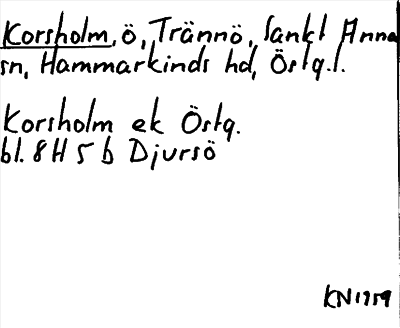 Korsholm, ö, Trännö, Sankt Anna
sn, Hammarkinds hd, Östg.l.
Korsholm ek Östg.
bl. 8H 5 b Djursö
KN 1959